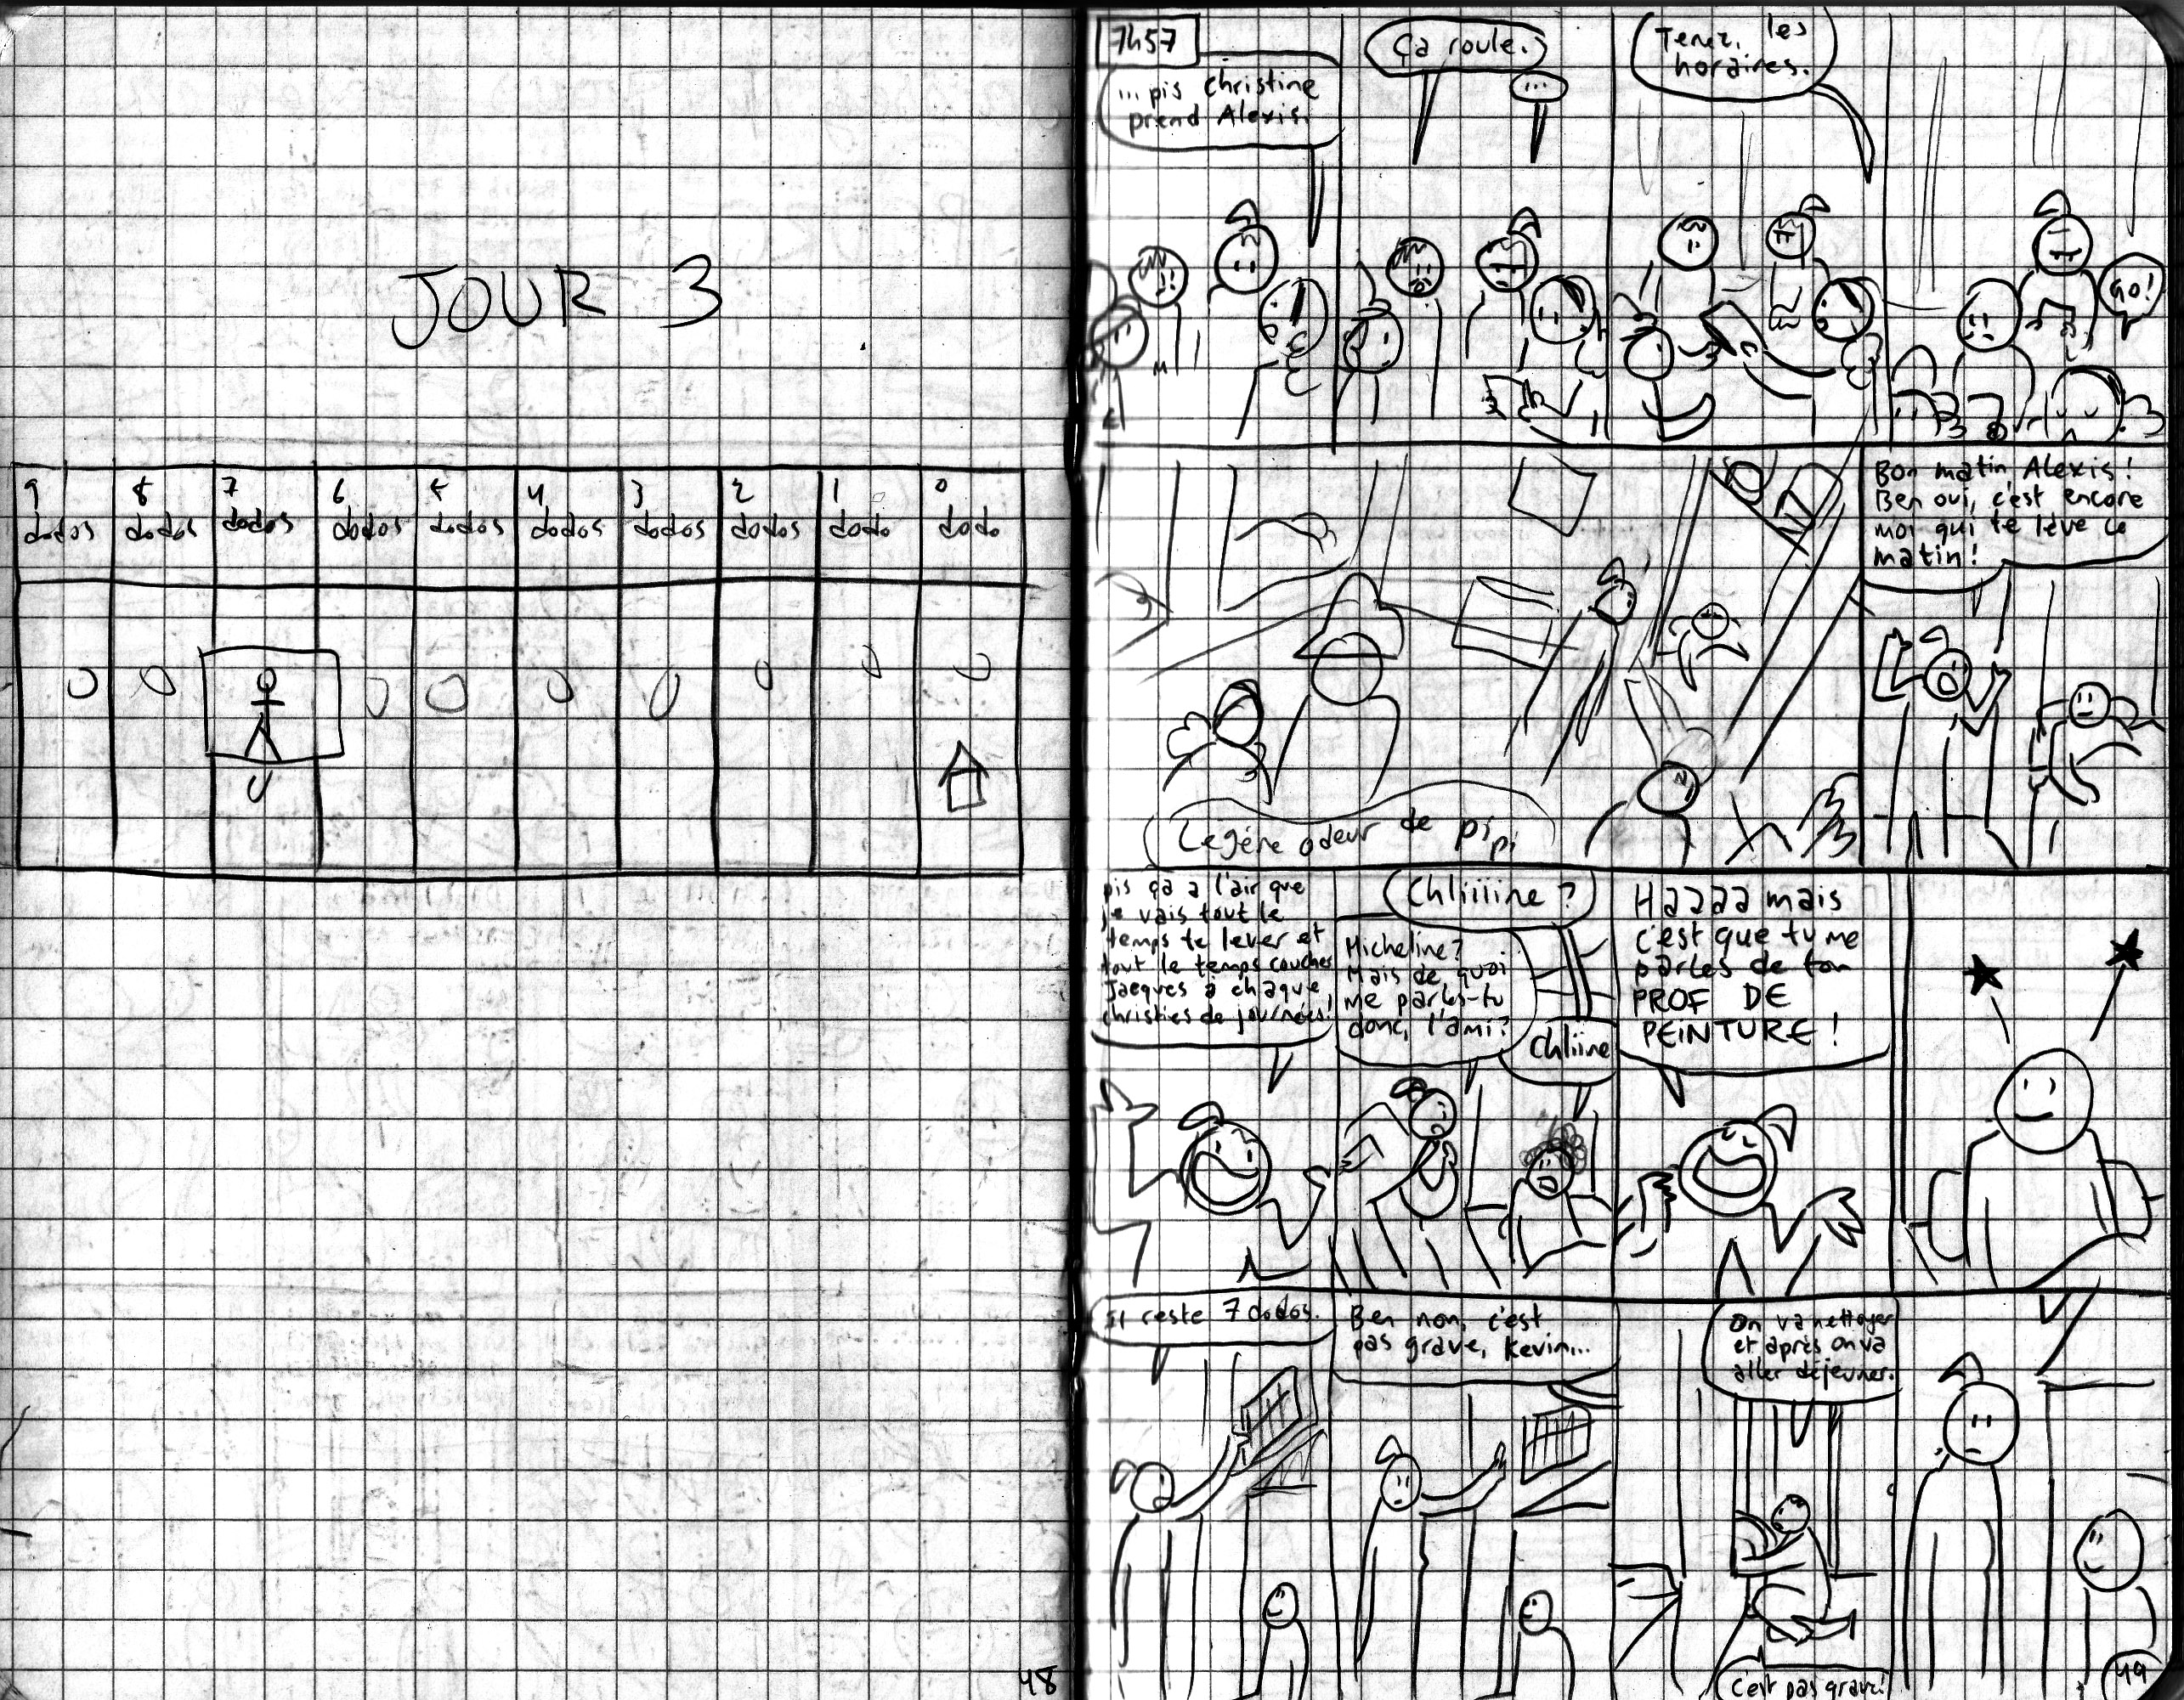 JOUR 3
9 dodos
8 dodos
7 dodos
6 dodos
5 dodos
4 dodos
3 dodos
2 dodos
1 dodo
0 dodo
48
7h57
...pis christine
prend Alexis.
Ça roule.
...
Tenez, les
horaires.
GO!
Légère odeur de pipi
Bon matin Alexis!
Ben oui, c'est encore
moi qui te lève ce
matin!
pis ça a l'air que
je vais tout le
temps te lever et
tout le temps coucher
Jacques à chaque
christies de journées!
Chliiiine ?
Micheline?
Mais de quoi
me parles-tu
donc, l'ami?
Chliine
Haaaa mais
c'est que tu me
parles de ton
PROF DE
PEINTURE !
Il reste 7 dodos.
Ben non, c'est
pas grave, Kevin...
On va nettoyer
et après on va
aller déjeuner.
C'est pas grave!
49